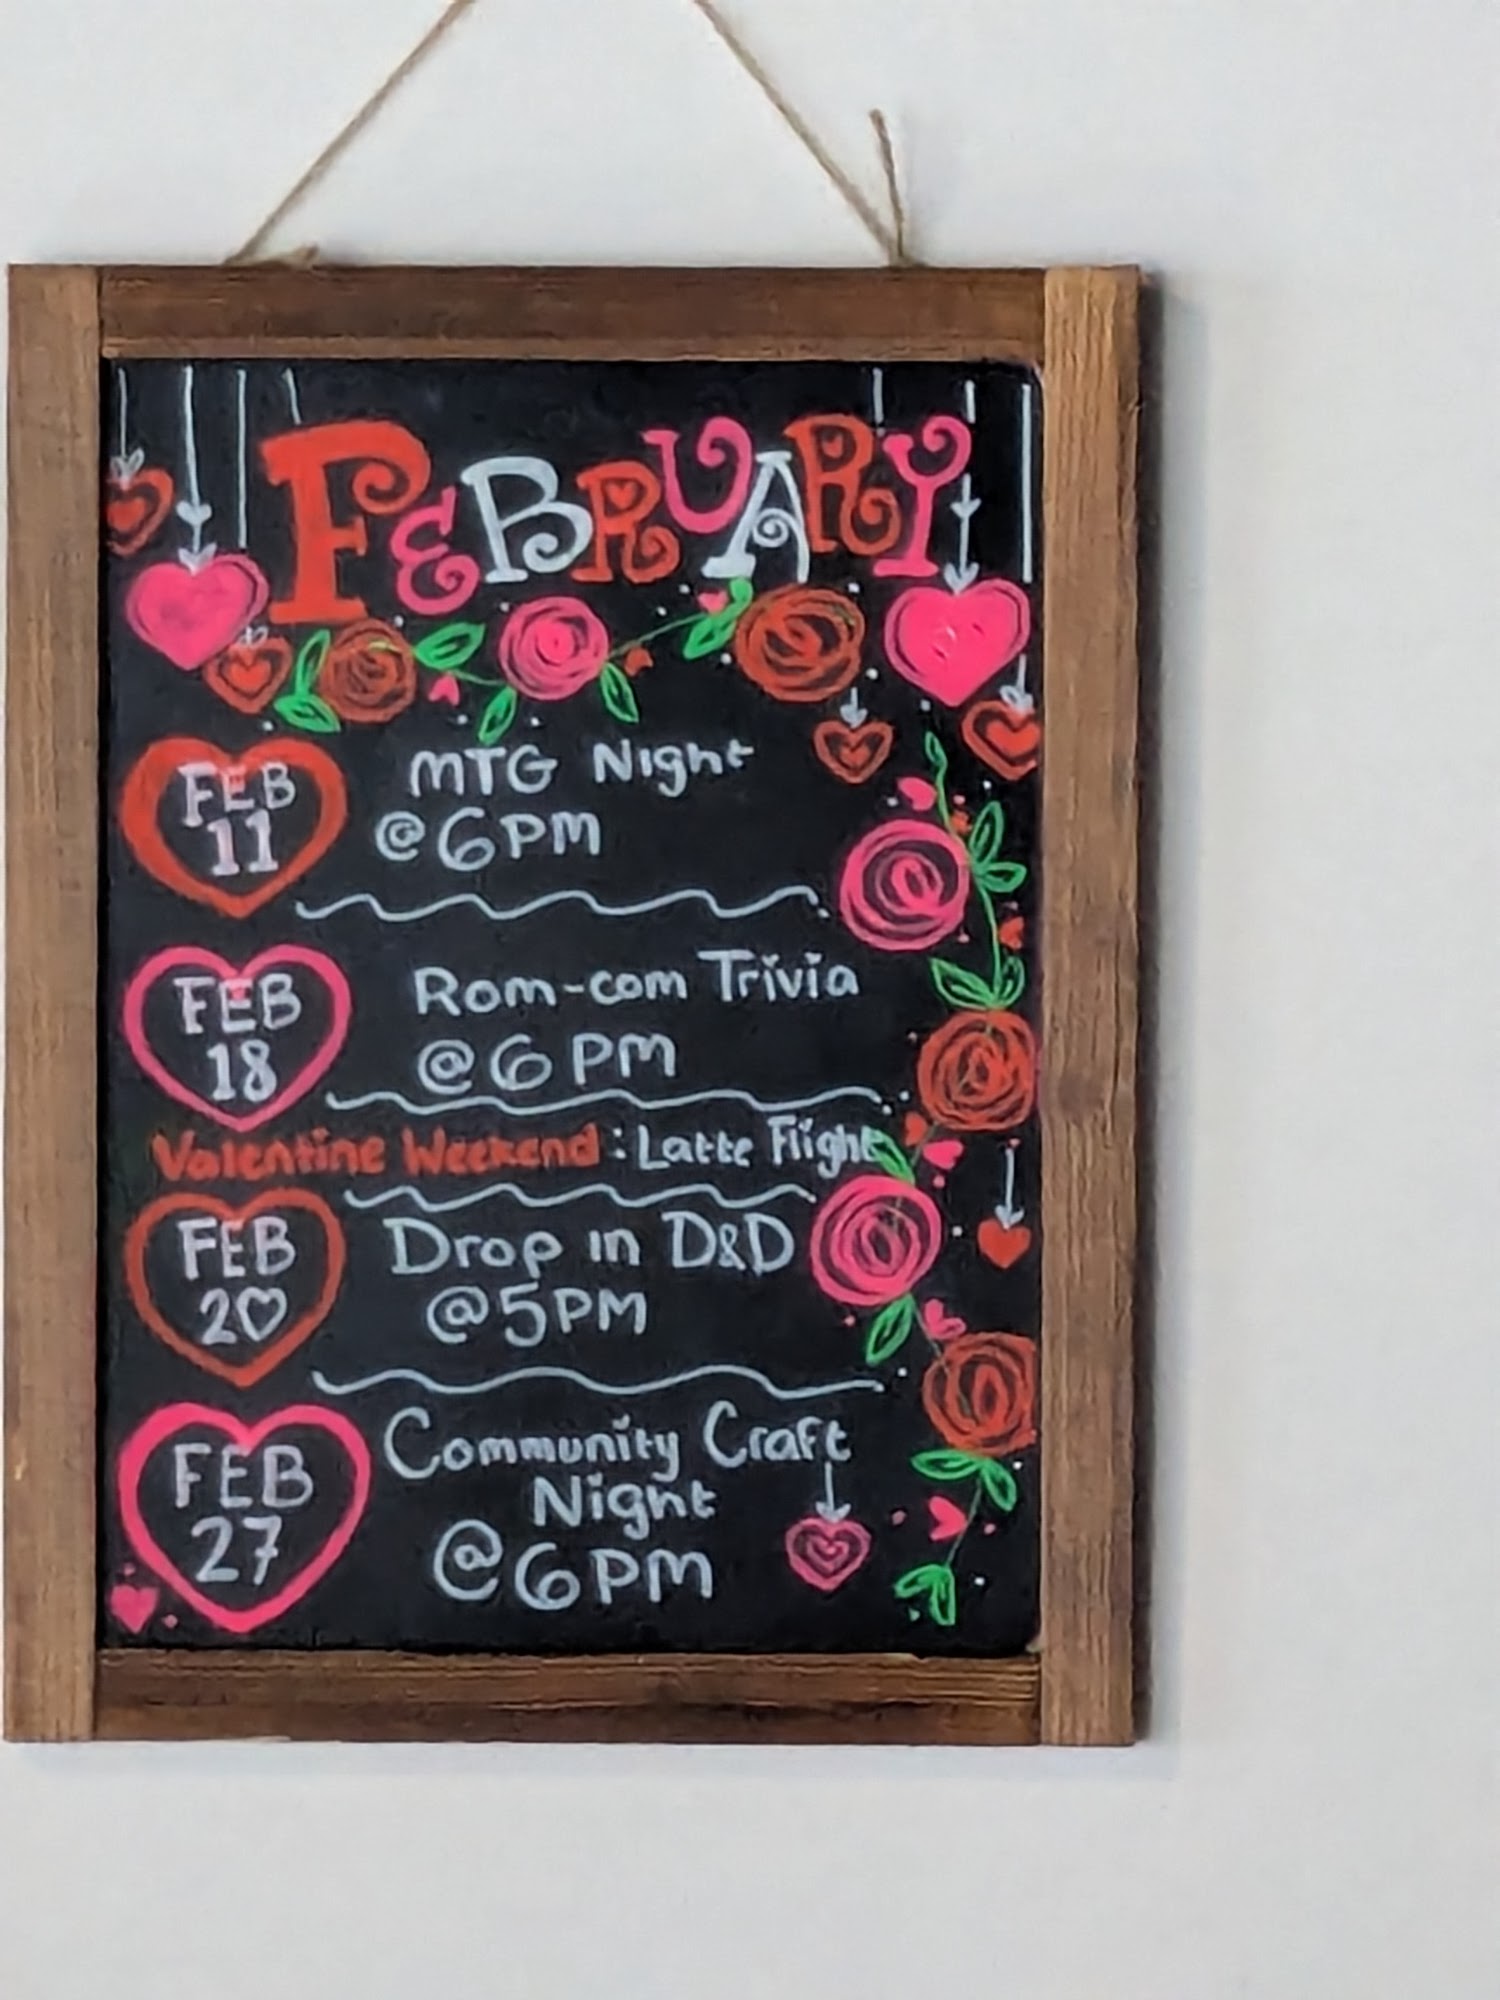 FEBRUARY
FEB
11
MTG Night
@ 6PM
FEB
18
Rom-com Trivia
@ 6 PM
Valentine Weekend: Latte Flight
FEB
20
Drop in D&D
@ 5PM
FEB
27
Community Craft
Night
@ 6PM